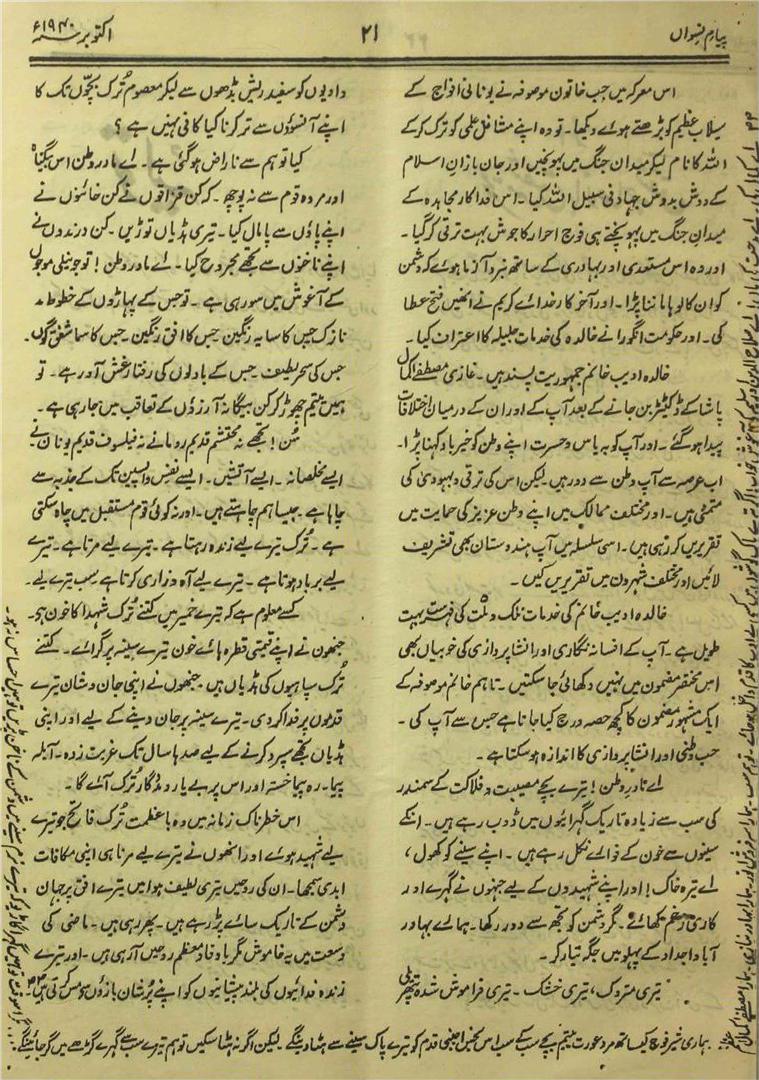 پیام نسواں
۲۱
اکتوبر سنہ ۱۹۴۰ء
اس معرکہ میں جب خاتون موصوفہ نے یونانی افواج کے
سیلاب عظیم کو بڑھتے ہوئے دیکھا۔ تو وہ اپنے مشاغل علمی کو ترک کر کے
اللہ کا نام لیکر میدان جنگ میں پہونچیں اور جان بازان اسلام
کے دوش بدوش جہاد فی سبیل اللہ کیا۔ اس فداکار مجاہدہ کے
میدان جنگ میں پہونچتے ہی فوج احرار کا جوش بہت ترقی کر گیا۔
اور وہ اس مستعدی اور بہادری کے ساتھ نبرد آزما ہوئے کہ دشمن
کو ان کا لوہا ماننا پڑا۔ اور آخر کار خدائے کریم نے انھیں فتح عطا
کی۔ اور حکومت انگورا نے خالدہ کی خدمات جلیلہ کا اعتراف کیا۔
خالدہ ادیب خانم جمہوریت پسند ہیں۔ غازی مصطفےٰ کمال
پاشا کے ڈکٹیٹر بن جانے کے بعد آپ کے اور ان کے درمیان اختلافات
پیدا ہو گئے۔ اور آپ کو بہ یاس و حسرت اپنے وطن کو خیر باد کہنا پڑا۔
اب عرصہ سے آپ وطن سے دور ہیں لیکن اس کی ترقی و بہبودی کی
متمنی ہیں۔ اور مختلف ممالک میں اپنے وطن عزیز کی حمایت میں
تقریریں کر رہی ہیں۔ اسی سلسلہ میں آپ ہندوستان بھی تشریف
لائیں اور مختلف شہروں میں تقریریں کیں۔
خالدہ ادیب خانم کی خدمات ملک و ملت کی فہرست بہت
طویل ہے۔ آپ کے افسانہ نگاری اور انشا پردازی کی خوبیاں بھی
اس مختصر مضمون میں نہیں دکھائی جا سکتیں۔ تاہم خانم موصوفہ کے
ایک مشہور مضمون کا کچھ حصہ درج کیا جاتا ہے جس سے آپ کی
حب وطنی اور انشا پردازی کا اندازہ ہو سکتا ہے۔
اے مادر وطن! تیرے بچے مصیبت و فلاکت کے سمندر
کی سب سے زیادہ تاریک گہرائیوں میں ڈوب رہے ہیں۔ انکے
سینوں سے خون کے فوارے نکل رہے ہیں۔ اپنے سینے کو کھول،
اے تیرہ خاک! اور اپنے شہیدوں کے لیے جنھوں نے گہرے اور
کاری زخم کھائے۔ مگر دشمن کو تجھ سے دور رکھا۔ ہمارے بہادر
آبا و اجداد کے پہلو میں جگہ تیار کر۔
تیری متروک، تیری خشک۔ تیری فراموش شدہ پتھریلی
دادیوں کو سفید ریش بڈھوں سے لیکر معصوم ترک بچوں تک کا
اپنے آنسوؤں سے تر کرنا کیا کافی نہیں ہے؟
کیا تو ہم سے ناراض ہو گئی ہے۔ اے مادر وطن اس بیگناہ
اور مردہ قوم سے نہ پوچھ۔ کہ کن قزاقوں نے کن خائنوں نے
اپنے پاؤں سے پامال کیا۔ تیری ہڈیاں توڑیں۔ کن درندوں نے
اپنے ناخنوں سے تجھے مجروح کیا۔ اے مادر وطن! تو جو نیلی موجوں
کے آغوش میں سو رہی ہے۔ تو جس کے پہاڑوں کے خطوط
نازک جس کا سایہ رنگین جس کا افق رنگین۔ جس کا سما شفق گوں۔
جس کی سحر لطیف۔ جس کے بادلوں کی رفتار غش آور ہے۔ تو
ہمیں یتیم چھوڑ کر کن بیگانہ آرزوؤں کے تعاقب میں جا رہی ہے۔
سُن! تجھے نہ محتشم قدیم روما نے نہ فیلسوف قدیم یونان نے
ایسے مخلصانہ۔ ایسے آتشیں۔ ایسے نفس واپسین تک کے جذبہ سے
چاہا ہے۔ جیسا ہم چاہتے ہیں۔ اور نہ کوئی قوم مستقبل میں چاہ سکتی
ہے۔ تُرک تیرے لیے زندہ رہتا ہے۔ تیرے لیے مرتا ہے۔ تیرے
لیے برباد ہوتا ہے۔ تیرے لیے آہ و زاری کرتا ہے سب تیرے لیے۔
کسے معلوم ہے کہ تیرے خمیر میں کتنے تُرک شہدا کا خون ہو۔
جنھوں نے اپنے قیمتی قطرہ ہائے خون تیرے سینہ پر گرائے۔ کتنے
تُرک سپاہیوں کی ہڈیاں ہیں۔ جنھوں نے اپنی جان و شان تیرے
قدموں پر فدا کر دی۔ تیرے سینہ پر جان دینے کے لیے اور اپنی
ہڈیاں تجھے سپرد کرنے کے لیے صدہا سال تک غربت زدہ۔ آبلہ
پپا۔ رہ پیما خستہ اور اس پر بے یار و مددگار تُرک آئے گا۔
اس خطرناک زمانہ میں وہ با عظمت تُرک فاتح جو تیرے
لیے شہید ہوئے اور انھوں نے تیرے لیے مرنا ہی اپنی مکافات
ابدی سمجھا۔ ان کی روحیں تیری لطیف ہوا میں تیرے افق پر جہاں
دشمن کے تاریک سائے پڑ رہے ہیں۔ پھر رہی ہیں۔ ماضی کی
وسعت میں یہ خاموش مگر با وفا معظم روحیں آ رہی ہیں۔ اور تیرے
زندہ فدائیوں کی بلند پیشانیوں کو اپنے پُرشان بازوں سے مس کرتی ہیں
ہماری شیر فوج کیساتھ مرد عورت یتیم بچے سب کے سب اس نجس اجنبی قدم کو تیرے پاک سینے سے ہٹا دینگے۔ لیکن اگر نہ ہٹا سکیں تو ہم تیرے سب سے گہرے گڑھے میں گر جائینگے